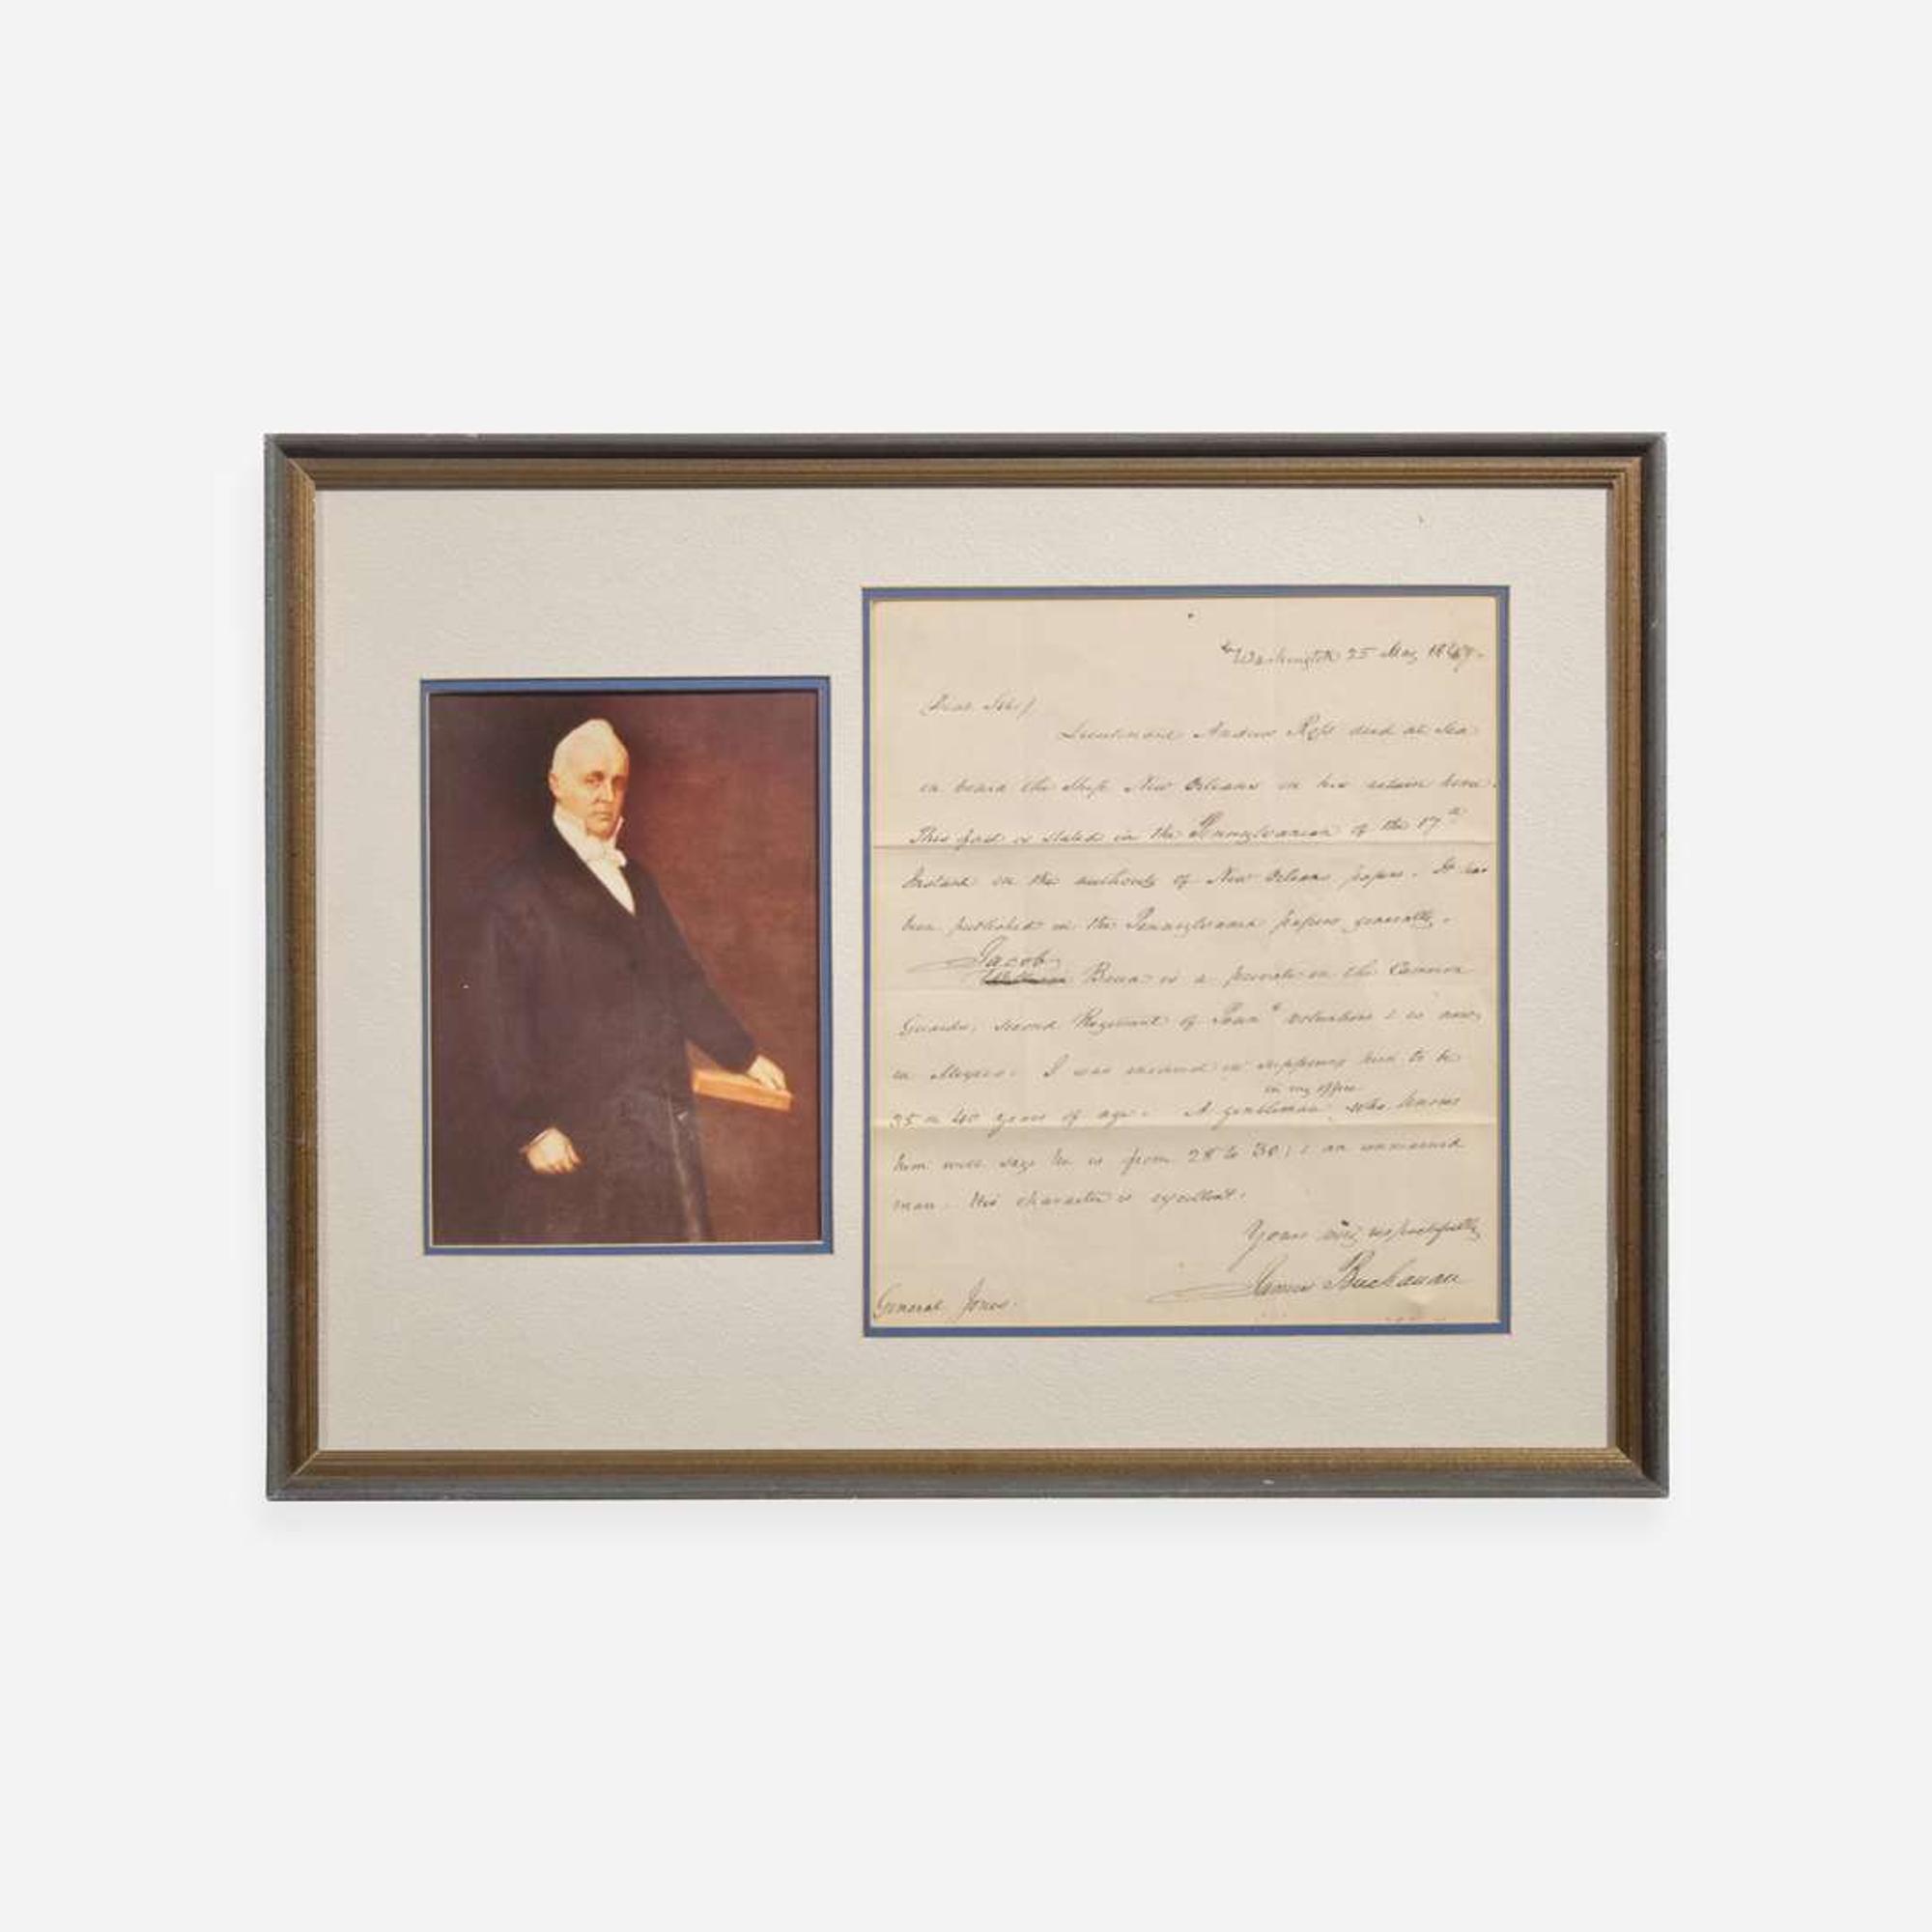 Washington 25 May 1847.
Dear Sir/
Lieutenant Andrew Ross died at Sea
on board the Ship New Orleans on his return home.
This fact is stated in the Pennsylvanian of the 17th
Instant on the authority of New Orleans papers. It has
been published in the Pennsylvania papers generally.
Jacob
is a private in the Cameron
Guards, second Regiment of Penna volunteers & is now
in Mexico. I was in supposing him to be
in my office
35 or 40 years of age. A gentleman who knows
him well says he is from 28 to 30; & an unmarried
man. His character is excellent.
Yours very respectfully
James Buchanan
General Jones.